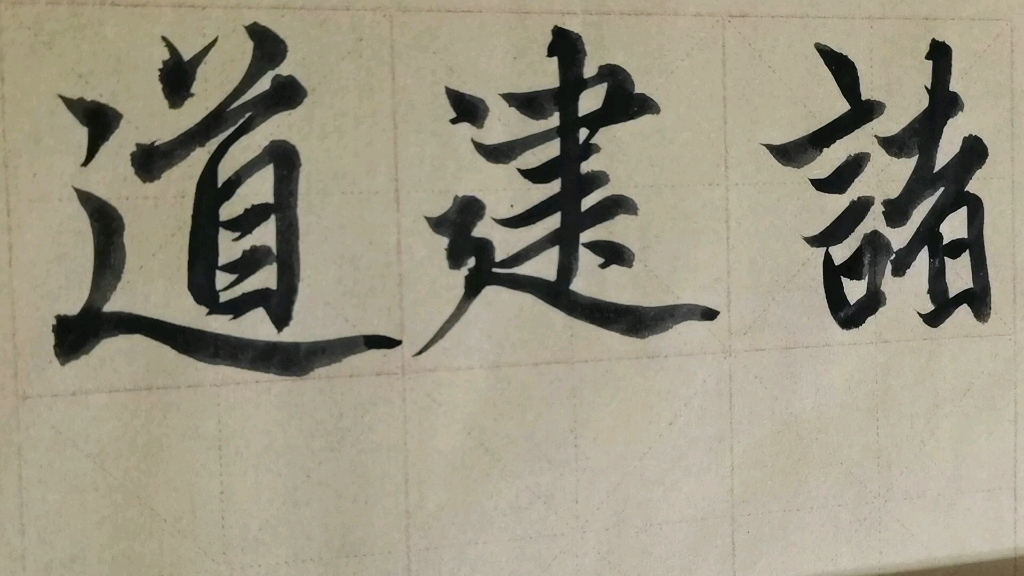 道建諸